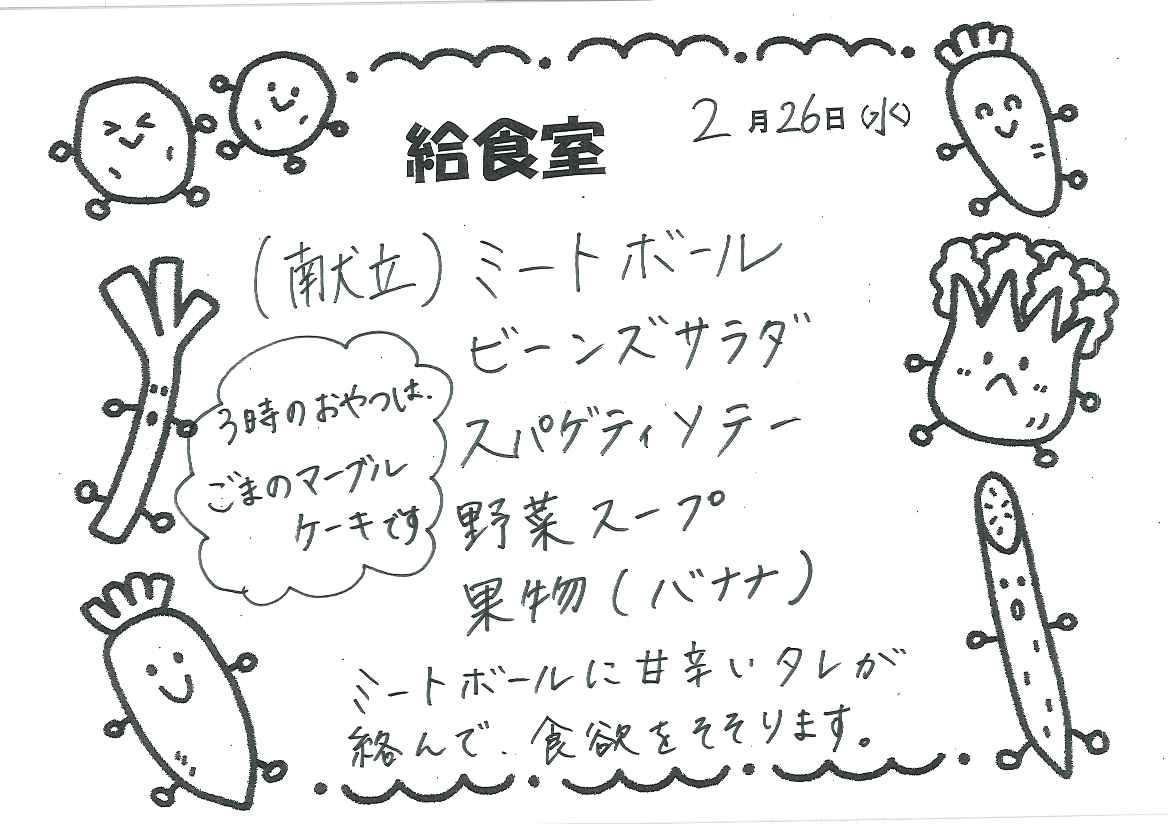 給食室
2月26日(水)
(献立)ミートボール
ビーンズサラダ
スパゲティソテー
野菜スープ
果物(バナナ)
3時のおやつは、
ごまのマーブル
ケーキです
ミートボールに甘辛いタレが
絡んで、食欲をそそります。